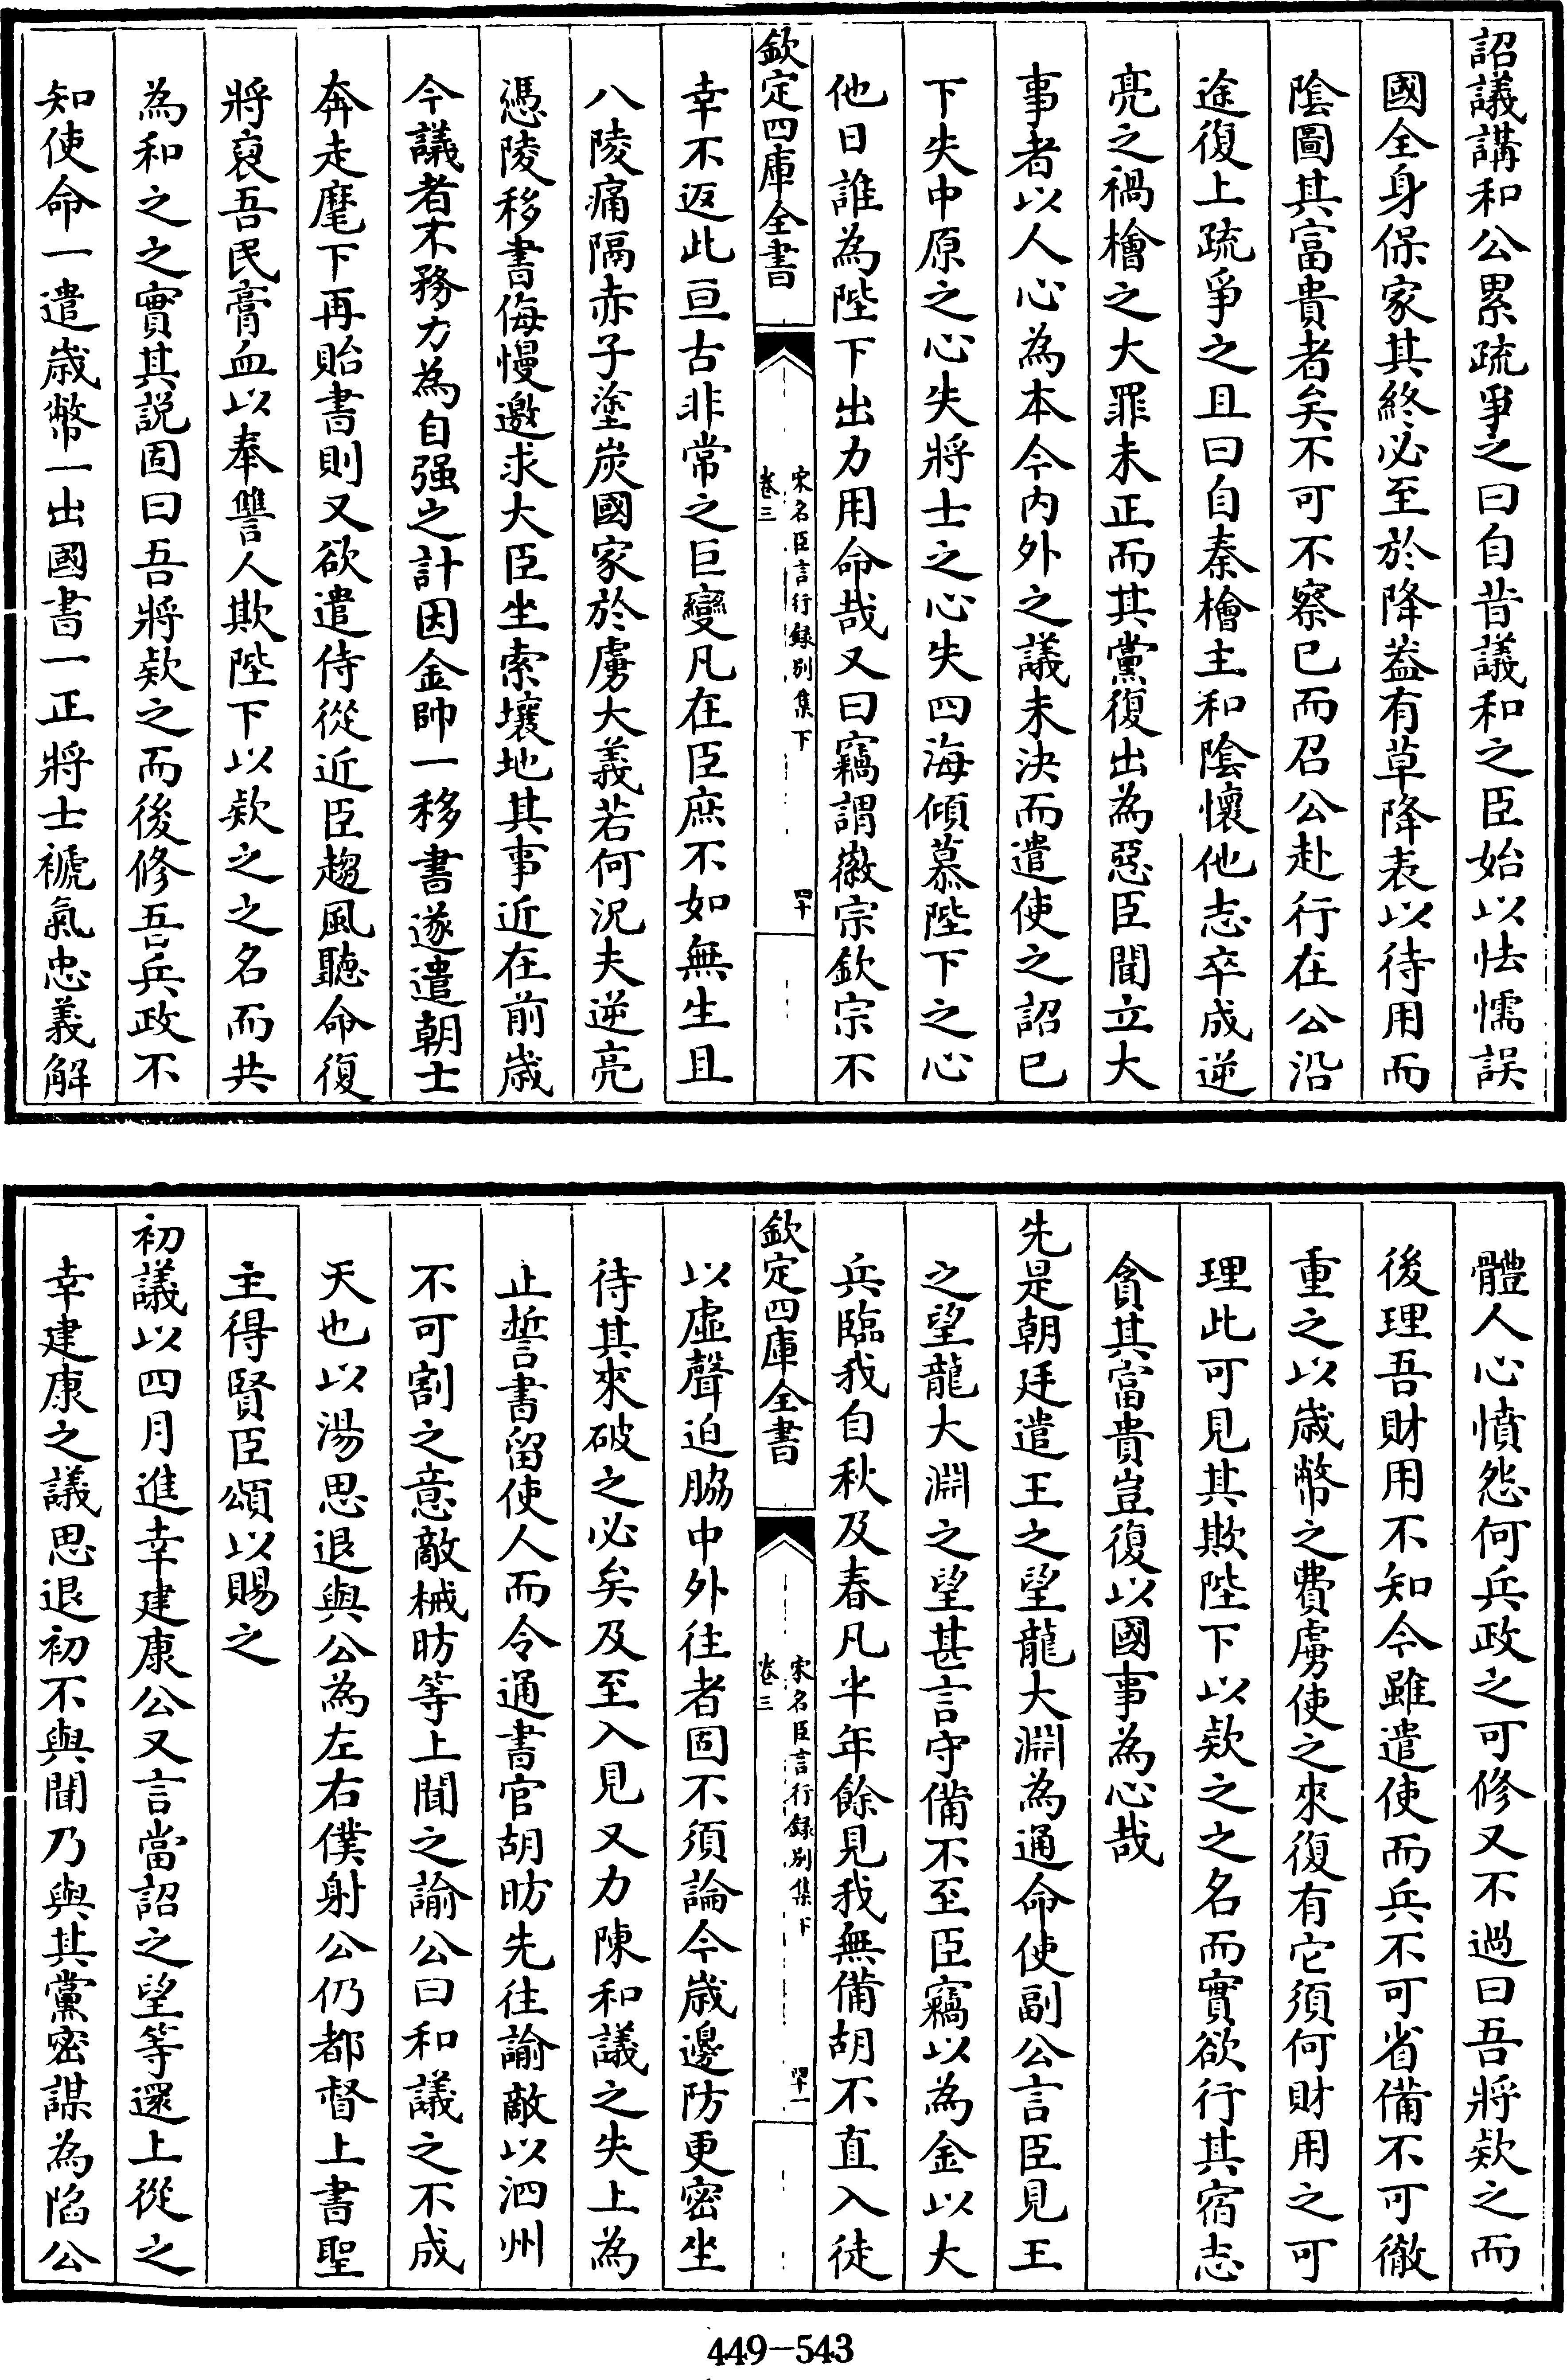 詔議講和公累疏爭之曰自昔議和之臣始以怯懦誤
國全身保家其終必至於降葢有草降表以待用而
陰圖其富貴者矣不可不察已而召公赴行在公沿
途復上疏爭之且曰自秦檜主和陰懷他志卒成逆
亮之禍檜之大罪未正而其黨復出為惡臣聞立大
事者以人心為本今内外之議未決而遣使之詔已
下失中原之心失將士之心失四海傾慕陛下之心
他日誰為陛下出力用命哉又曰竊謂徽宗欽宗不
欽定四庫全書
宋名臣言行録别集下
卷三
四十
幸不返此亘古非常之巨變凡在臣庶不如無生且
八陵痛隔赤子塗炭國家於虜大義若何況夫逆亮
憑陵移書侮慢邀求大臣坐索壤地其事近在前歳
今議者不務力為自强之計因金帥一移書遂遣朝士
奔走麾下再貽書則又欲遣侍從近臣趨風聽命復
將裒吾民膏血以奉讐人欺陛下以欵之之名而共
為和之之實其説固曰吾將欵之而後修吾兵政不
知使命一遣歳幣一出國書一正將士褫氣忠義解
體人心憤怨何兵政之可修又不過曰吾將欵之而
後理吾財用不知今雖遣使而兵不可省備不可徹
重之以歳幣之費虜使之來復有它須何財用之可
理此可見其欺陛下以欵之之名而實欲行其宿志
貪其富貴豈復以國事為心哉
先是朝廷遣王之望龍大淵為通命使副公言臣見王
之望龍大淵之望甚言守備不至臣竊以為金以大
兵臨我自秋及春凡半年餘見我無備胡不直入徒
欽定四庫全書
宋名臣言行録别集下
卷三
四十一
以虛聲迫脇中外往者固不須論今歳邊防更密坐
待其來破之必矣及至入見又力陳和議之失上為
止誓書留使人而令通書官胡昉先往諭敵以泗州
不可割之意敵械昉等上聞之諭公曰和議之不成
天也以湯思退與公為左右僕射公仍都督上書聖
主得賢臣頌以賜之
初議以四月進幸建康公又言當詔之望等還上從之
幸建康之議思退初不與聞乃與其黨密謀為陷公
449-543